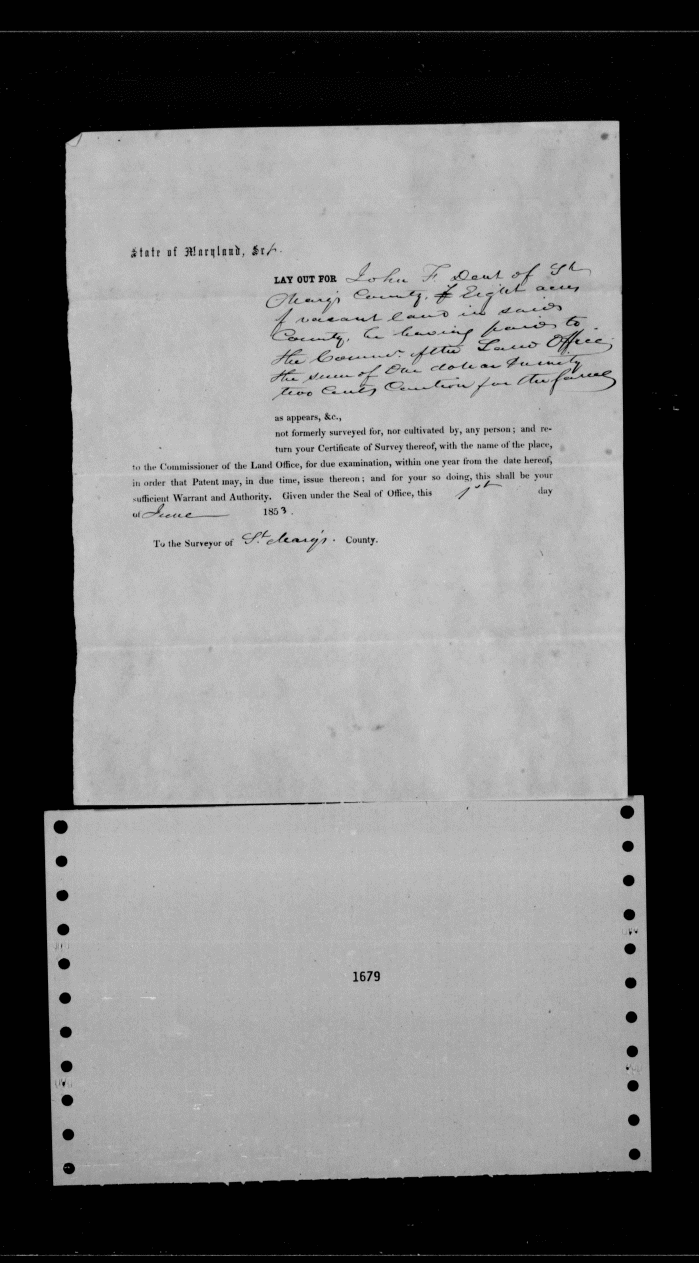 State of Maryland, Sct.
LAY OUT FOR John F. Dent of St
Mary's County, Eight acres
of vacant land in said
County, he having paid to
the Commr. of the Land Office,
the sum of One dollar & ninety
two Cents Caution for the same
as appears, &c.,
not formerly surveyed for, nor cultivated by, any person; and re-
turn your Certificate of Survey thereof, with the name of the place,
to the Commissioner of the Land Office, for due examination, within one year from the date hereof,
in order that Patent may, in due time, issue thereon; and for your so doing, this shall be your
sufficient Warrant and Authority. Given under the Seal of Office, this 1st day
of June 1853.
To the Surveyor of St. Mary's. County.
1679